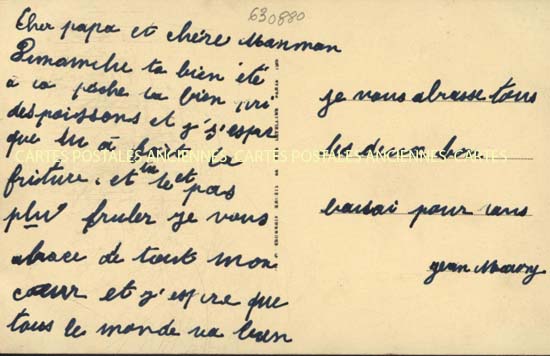 630880
Cher papa et chère Manman
Dimanche ta bien été
à la pèche ta bien pri
des poissons et j's'espre
que tu à la
friture. et tu le et pas
plu fruler je vous
abrace de tout mon
cœur et j'espre que
tous le monde va bien
je vous abrasse tous
les deux
baissai pour vous
jean
CARTES POSTALES ANCIENNES CARTES POSTALES ANCIENNES